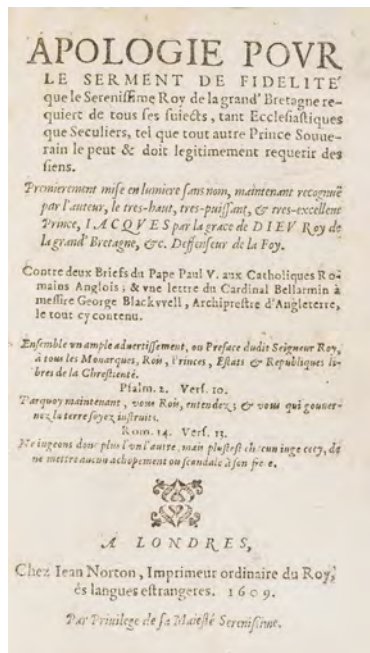 APOLOGIE POVR
LE SERMENT DE FIDELITÉ
que le Serenissime Roy de la grand' Bretagne re-
quiert de tous ses suiects, tant Ecclesiastiques
que Seculiers, tel que tout autre Prince Souue-
rain le peut & doit legitimement requerir des
siens.
Premierement mise en lumiere sans nom, maintenant recognuë
par l'auteur, le tres-haut, tres-puissant, & tres-excellent
Prince, IACQVES par la grace de DIEV Roy de
la grand' Bretagne, &c. Deffenseur de la Foy.
Contre deux Briefs du Pape Paul V. aux Catholiques Ro-
mains Anglois; & vne lettre du Cardinal Bellarmin à
messire George Blackvvell, Archiprestre d'Angleterre,
le tout cy contenu.
Ensemble vn ample aduertissement, ou Preface dudit Seigneur Roy,
à tous les Monarques, Rois, Princes, Estats & Republiques li-
bres de la Chrestienté.
Psalm. 2. Vers. 10.
Parquoy maintenant, vous Rois, entendez; & vous qui gouuer-
nez la terre soyez instruits.
Rom. 14. Vers. 13.
Ne iugeons donc plus l'vn l'autre, mais plustost chacun iuge cecy, de
ne mettre aucun achopement ou scandale à son frere.
A LONDRES,
Chez Iean Norton, Imprimeur ordinaire du Roy,
és langues estrangeres. 1609.
Par Priuilege de sa Maiesté Serenissime.